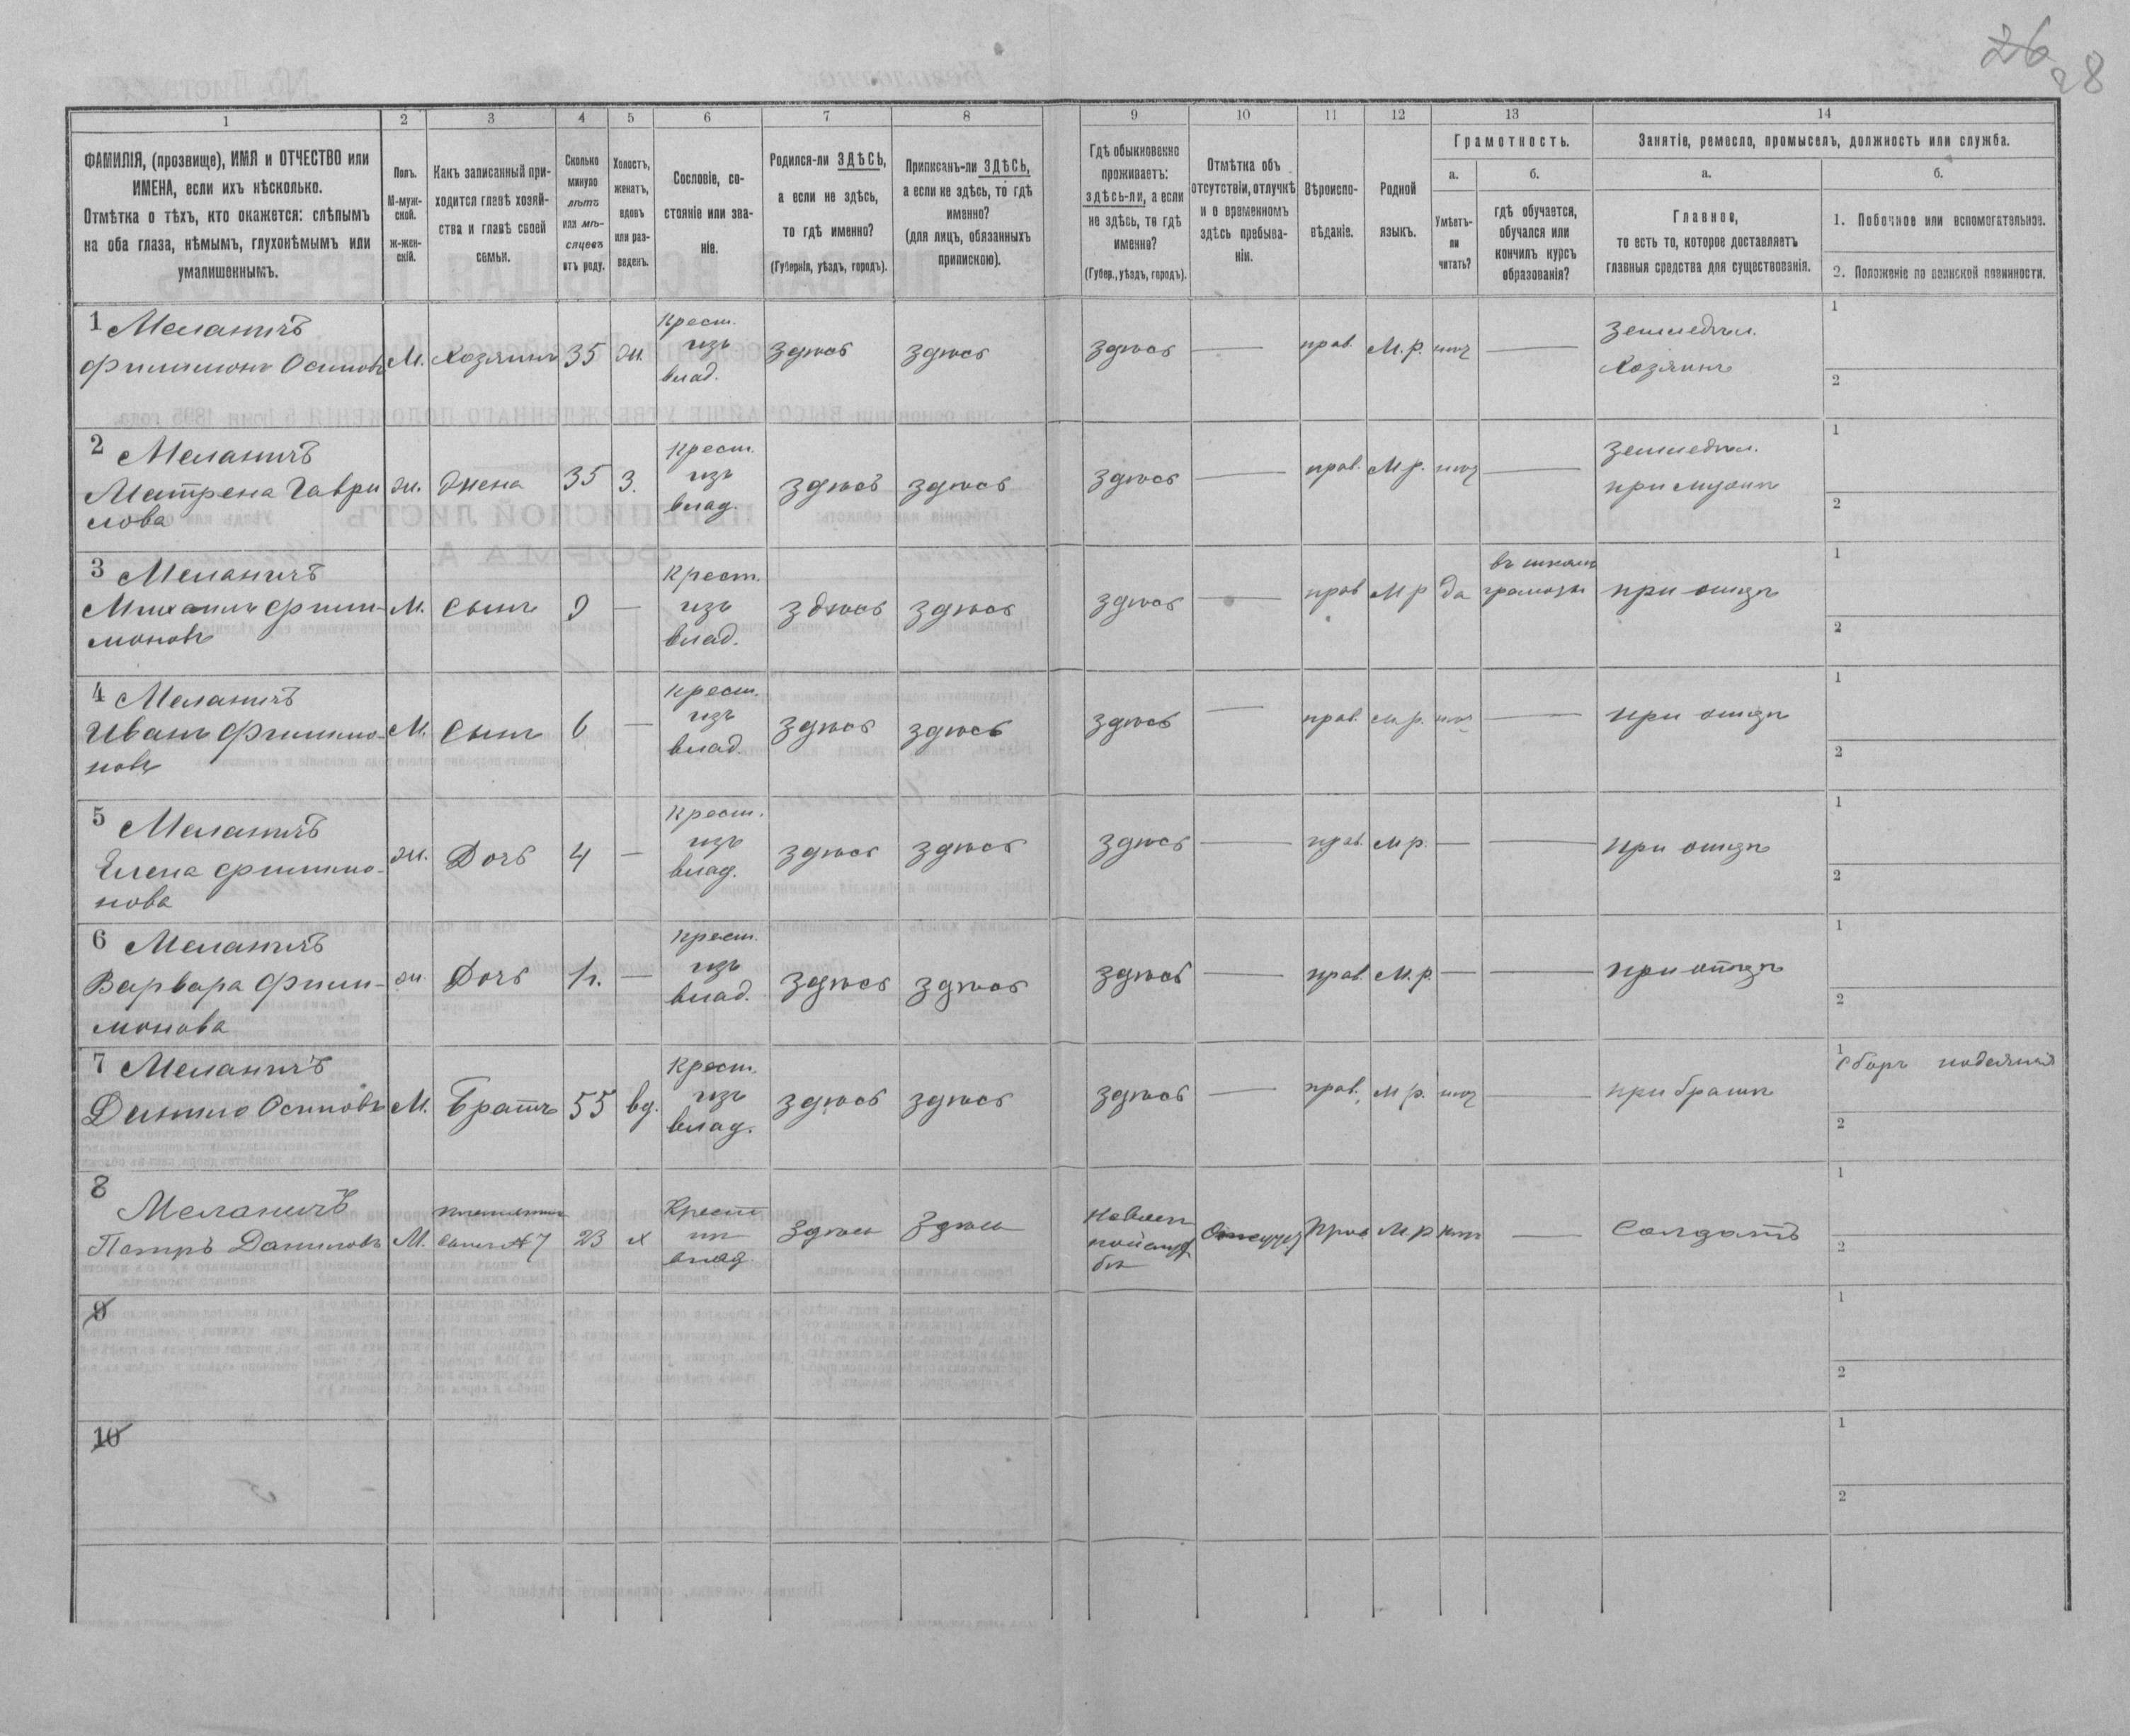 26
28
1 2 3 4 5 6 7 8 9 10 11 12 13 14
ФАМИЛІЯ, (прозвище), ИМЯ и ОТЧЕСТВО или
ИМЕНА, если ихъ нѣсколько.
Отмѣтка о тѣхъ, кто окажется: слѣпымъ
на оба глаза, нѣмымъ, глухонѣмымъ или
умалишеннымъ.
Полъ.
М-муж-
ской.
ж-жен-
скій.
Какъ записанный при-
ходится главѣ хозяй-
ства и главѣ своей
семьи.
Сколько
минуло
лѣтъ
или мѣ-
сяцевъ
отъ роду.
Холостъ,
женатъ,
вдовъ
или раз-
веденъ.
Сословіе, со-
стояніе или зва-
ніе.
Родился-ли ЗДѢСЬ,
а если не здѣсь,
то гдѣ именно?
(Губернія, уѣздъ, городъ).
Приписанъ-ли ЗДѢСЬ,
а если не здѣсь, то гдѣ
именно?
(для лицъ, обязанныхъ
припискою).
Гдѣ обыкновенно
проживаетъ:
здѣсь-ли, а если
не здѣсь, то гдѣ
именно?
(Губер., уѣздъ, городъ).
Отмѣтка объ
отсутствіи, отлучкѣ
и о временномъ
здѣсь пребыва-
ніи.
Вѣроиспо-
вѣданіе.
Родной
языкъ.
Грамотность.
а.
Умѣетъ-
ли
читать?
б.
гдѣ обучается,
обучался или
кончилъ курсъ
образованія?
Занятіе, ремесло, промыселъ, должность или служба.
а.
Главное,
то есть то, которое доставляетъ
главныя средства для существованія.
б.
1. Побочное или вспомогательное.
2. Положеніе по воинской повинности.
1 Меланичъ
Филимонъ Осиповъ
М. Хозяинъ 35 ж.
Крест.
изъ
влад.
здѣсь здѣсь здѣсь — прав. М.р. нѣт —
Земледѣл.
Хозяинъ
1
2
2 Меланичъ
Матрена Гаври
лова
ж. Жена 35 З.
Крест.
изъ
влад.
здѣсь здѣсь здѣсь — прав. М р. нѣт —
Земледѣл.
при мужѣ
1
2
3 Меланичъ
Михаилъ Фили-
моновъ
М. Сынъ 9 —
Крест.
изъ
влад.
здѣсь здѣсь здѣсь — прав М р да
въ школѣ
грамоты
при отцѣ
1
2
4 Меланичъ
Иванъ Филимо-
новъ
М. Сынъ 6 —
Крест.
изъ
влад.
здѣсь здѣсь здѣсь — прав. м р. нѣт —
при отцѣ
1
2
5 Меланичъ
Елена Филимо-
нова
ж. Дочь 4 —
Крест.
изъ
влад.
здѣсь здѣсь здѣсь — прав. м р. — —
при отцѣ
1
2
6 Меланичъ
Варвара Фили-
монова
ж Дочь 1г. —
Крест.
изъ
влад.
здѣсь здѣсь здѣсь — прав. М.р. — —
при отцѣ
1
2
7 Меланичъ
Данило Осиповъ
М. Братъ 55 вд.
Крест.
изъ
влад.
здѣсь здѣсь здѣсь — прав. м р. нѣт —
при братѣ
1
Сборъ подаяній
2
8
Меланичъ
Петръ Даниловъ
М.
племянникъ
сынъ № 7
23 х
Крест
из
влад.
здѣсь здѣсь
прав М.р нѣт —
Солдатъ
1
2
9
1
2
10
1
2